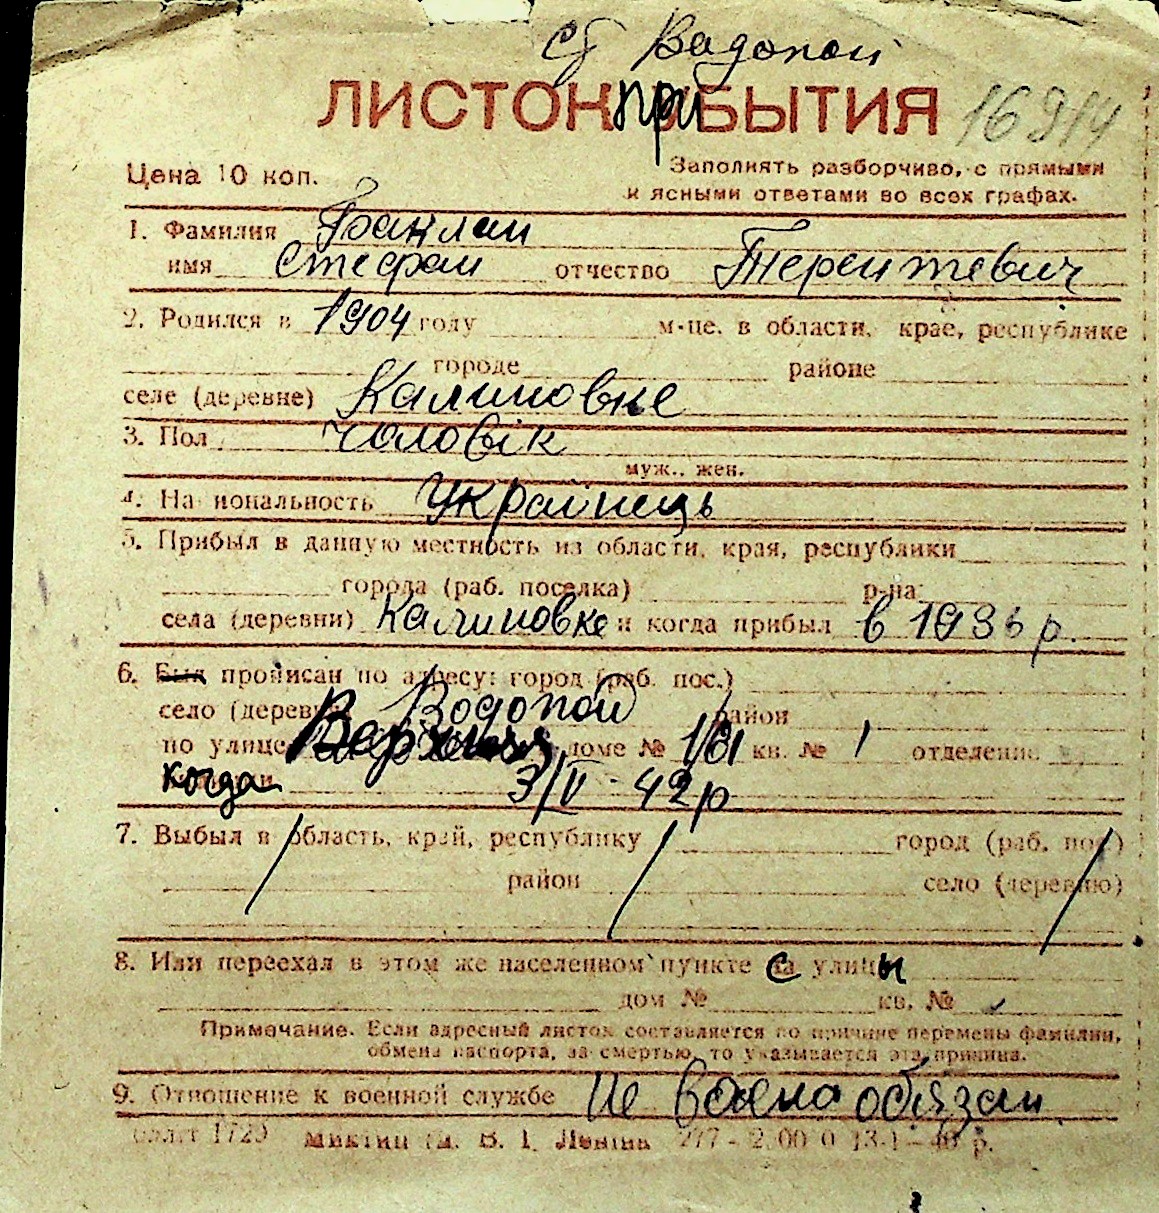 ст Водопой
ЛИСТОК ПРИБЫТИЯ 16914
Цена 10 коп. Заполнять разборчиво, с прямыми
и ясными ответами во всех графах.
1. Фамилия
имя Стефан отчество Терентевич
2. Родился в 1904 году м-це. в области, крае, республике
городе районе
селе (деревне) Калиновке
3. Пол чоловік
муж., жен.
4. Национальность Українець
5. Прибыл в данную местность из области, края, республики
города (раб. поселка) р-на
села (деревни) Калиновке и когда прибыл в 1936 р.
6. Был прописан по адресу: город (раб. пос.)
село (деревня) Водопой район
по улице Верхняя доме № 1/81 кв. № 1 отделение
когда 3/IV - 42 р
7. Выбыл в область, край, республику город (раб. пос.)
район село (деревню)
8. Или переехал в этом же населенном пункте с улицы
дом № кв. №
Примечание. Если адресный листок составляется по причине перемены фамилии,
обмена паспорта, за смертью, то указывается эта причина.
9. Отношение к военной службе не воено обязан
1723 Миктип ім. В. І. Леніна 277 - 2.00 0